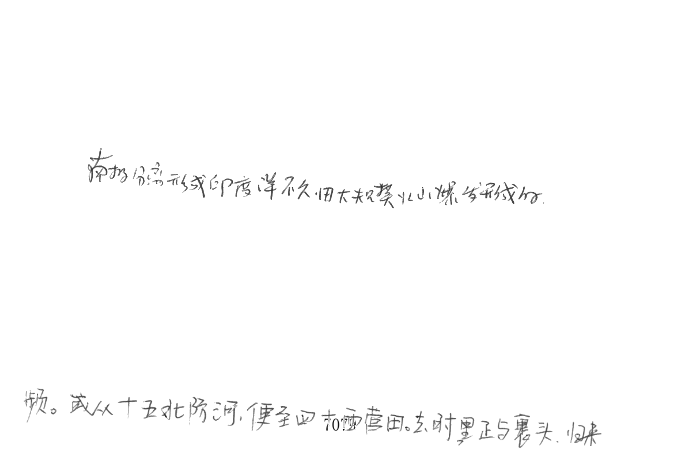 南极分离形成印度洋不久,由大规模火山爆发形成的.
频。或从十五北防河,便至四十西营田。去时里正与裹头,归来
70?